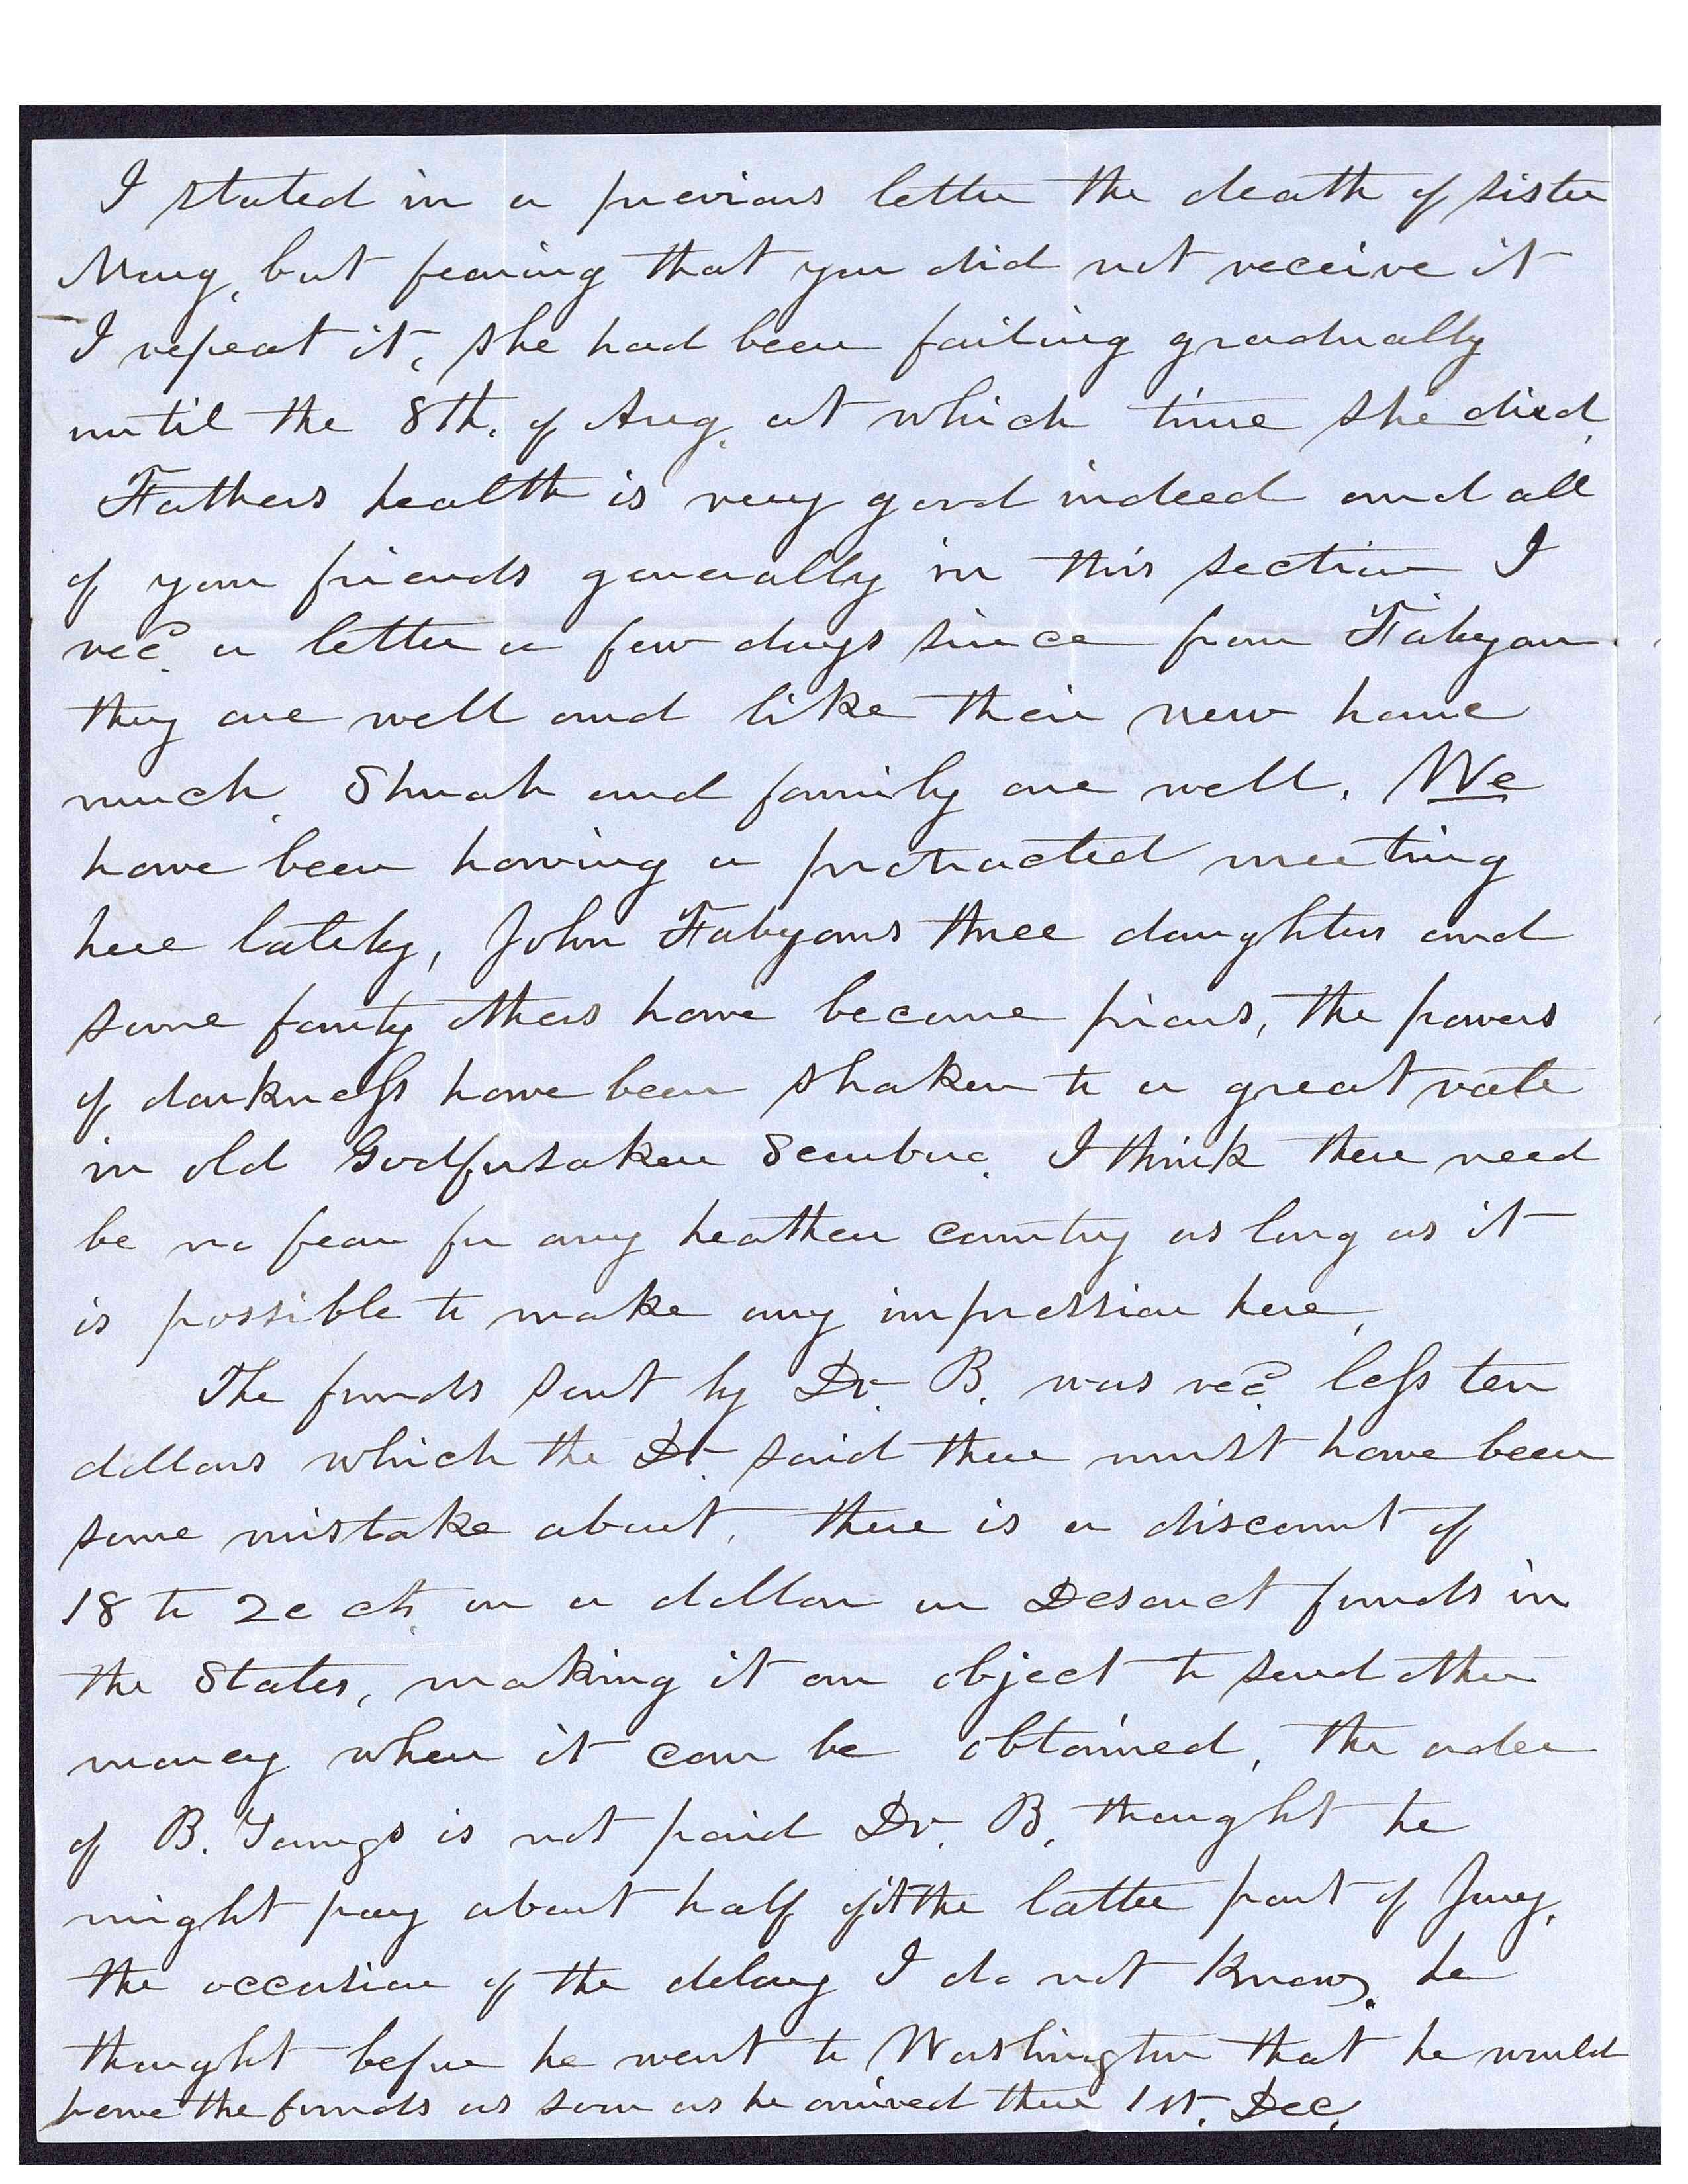 I stated in a previous letter the death of sister
Mary, but fearing that you did not receive it
I repeat it, she had been failing gradually
until the 8th. of Aug. at which time she died.
Fathers health is very good indeed and all
of your friends generally in this section I
recd. a letter a few days since from Fabyan.
they are well and like their new home
much. Shuah and family are well. We
have been having a protracted meeting
here lately, John Fabyans three daughters and
some forty others have become pious, the powers
of darkness have been shaken to a great rate
in old Godforsaken Scarboro. I think there need
be no fear for any heathen country as long as it
is possible to make any impression here.
The funds sent by Dr. B. was recd. less ten
dollars which the Dr. said there must have been
some mistake about. there is a discount of
18 to 20 cts. on a dollar on Deseret funds in
the States, making it an object to send other
money when it can be obtained, the order
of B. Youngs is not paid Dr. B. thought he
might pay about half of it the latter part of Jany.
the occasion of the delay I do not know. he
thought before he went to Washington that he would
have the funds as soon as he arrived there 1st. Dec.